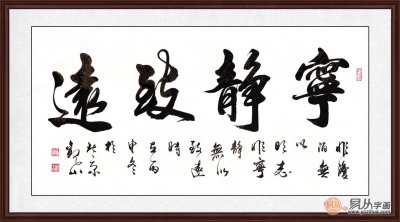 寧静致遠
非澹
泊無
以
明志
非寧
静
無以
致遠
時
在丙
申冬
於
北京
易从字画